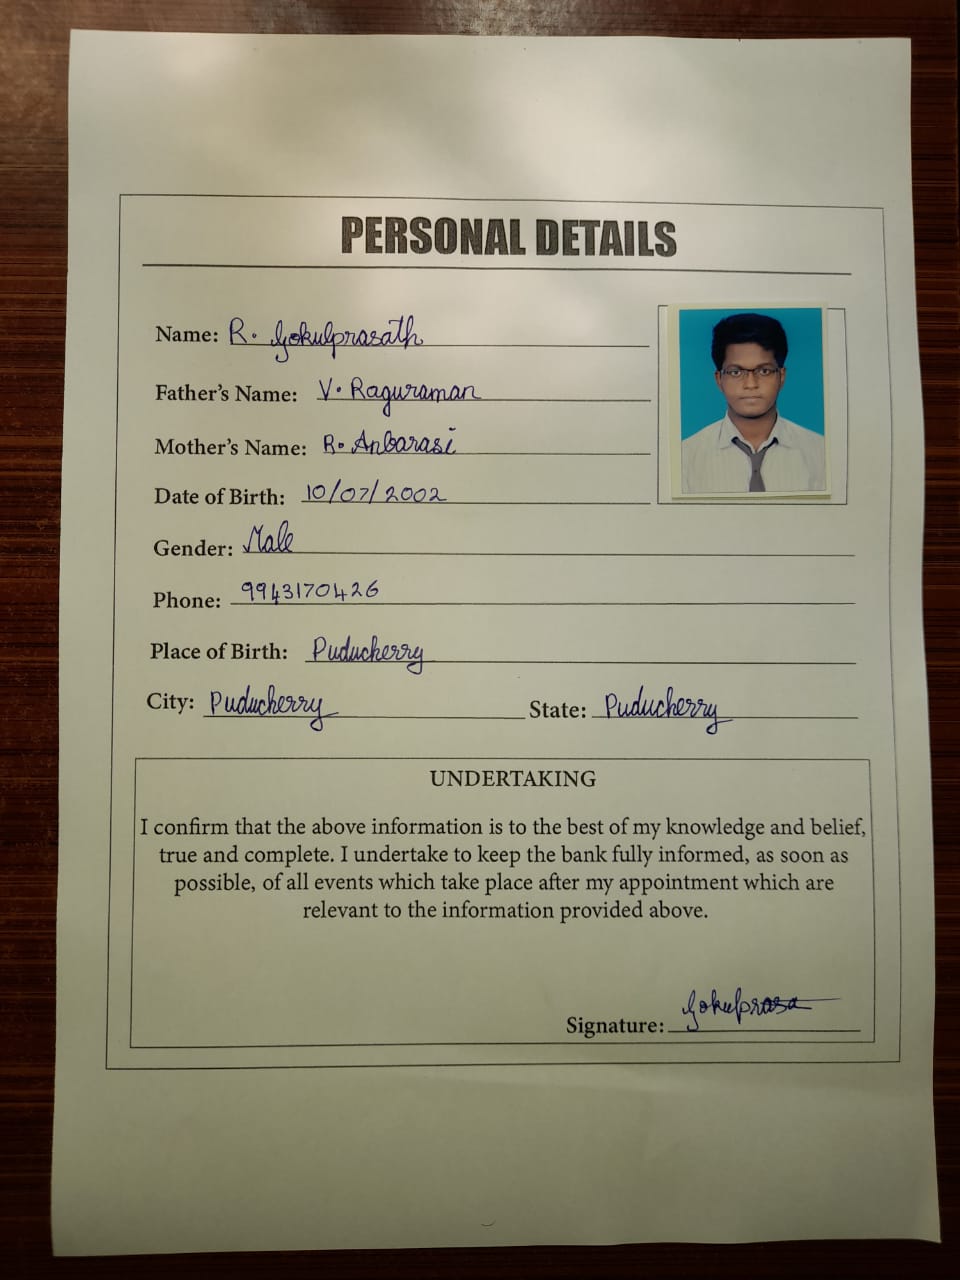 PERSONAL DETAILS
Name: R. Gokulprasath
Father's Name: V. Raguraman
Mother's Name: R. Anbarasi
Date of Birth: 10/07/2002
Gender: Male
Phone: 9943170426
Place of Birth: Puducherry
City: Puducherry State: Puducherry
UNDERTAKING
I confirm that the above information is to the best of my knowledge and belief,
true and complete. I undertake to keep the bank fully informed, as soon as
possible, of all events which take place after my appointment which are
relevant to the information provided above.
Signature: Gokulprasa